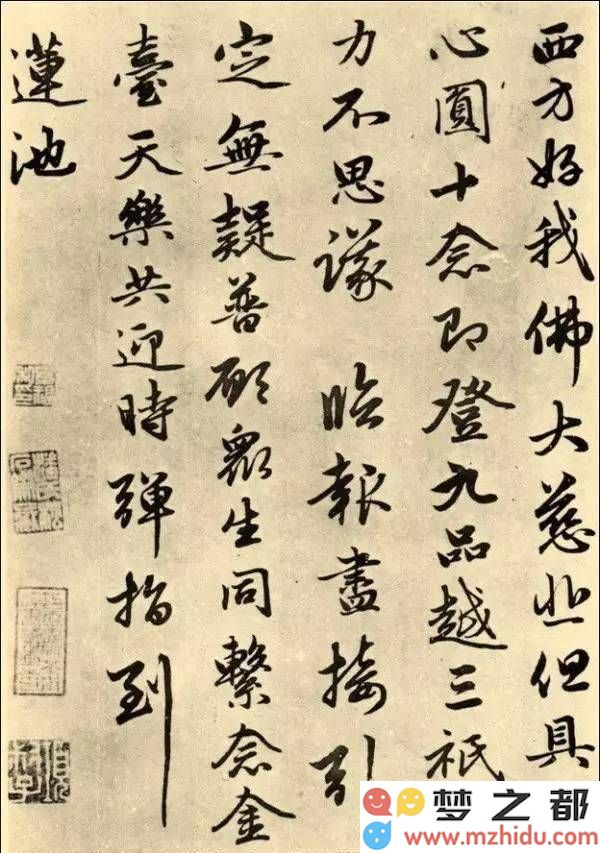 西方好我佛大慈悲但具
心圓十念即登九品越三祇
力不思議 臨報盡接引
定無疑普願眾生同繫念金
臺天樂共迎時彈指到
蓮池
梦之都
www.mzhidu.com